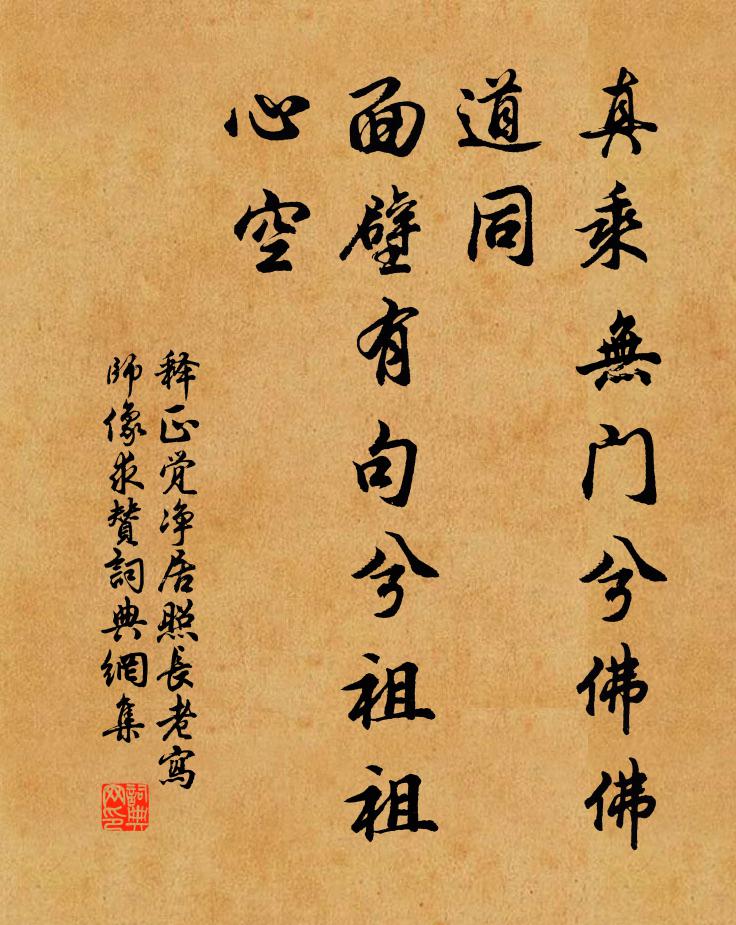 真乘無门兮佛佛
道同
面壁有句兮祖祖
心空
释正觉净居照長老寫
師像求赞詞典網集
詞典
网印